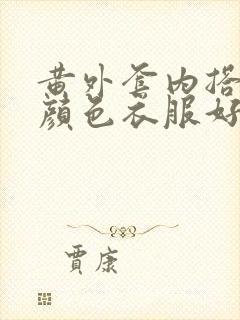 黄外套内搭
颜色衣服好
贾康